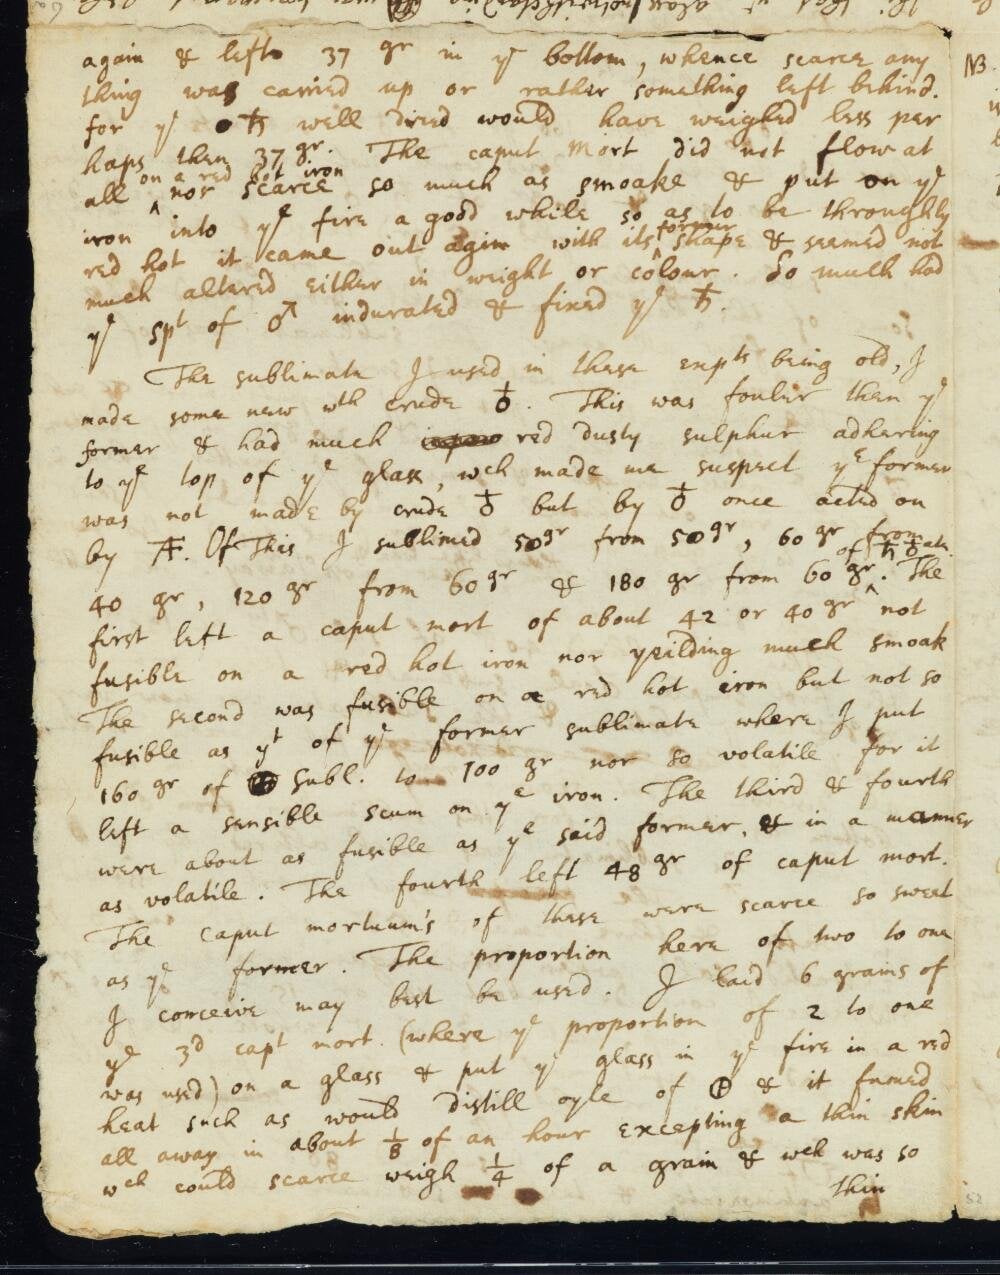 again & left 37 gr in ye bottom, whence scarce any
thing was carried up or rather something left behind.
for ye ♄ well dried would have weighed less per
haps then 37 gr. The caput Mort did not flow at
all ^ on a red hot iron nor scarce so much as smoake & put on ye
iron into ye fire a good while so as to be throughly
red hot it came out again with its ^ former shape & seamed not
much altered either in weight or colour. So much had
ye spt of ♂ indurated & fixed ye ♄.
The sublimate I used in these expts being old, I
made some new wth crude ♁. This was fouler then ye
former & had much red dusty sulphur adhering
to ye top of ye glass, wch made me suspect ye former
was not made by crude ♁ but by ♁ once acted on
by . Of This I sublimed 50gr from 50gr, 60 gr from
40 gr, 120 gr from 60 gr & 180 gr from 60 gr ^ of ♄ ♁. The
first left a caput mort of about 42 or 40 gr not
fusible on a red hot iron nor yeilding much smoak
The second was fusible on a red hot iron but not so
fusible as yt of ye former sublimate where I put
160 gr of subl. to 100 gr nor so volatile for it
left a sensible scum on ye iron. The third & fourth
were about as fusible as ye said former, & in a manner
as volatile. The fourth left 48 gr of caput mort.
The caput mortuum's of these were scarce so sweet
as ye former. The proportion here of two to one
I conceive may best be used. I laid 6 grains of
ye 3d capt mort. (where ye proportion of 2 to one
was used) on a glass & put ye glass in ye fire in a red
heat such as would distill oyle of & it fumed
all away in about 1/8 of an hour excepting a thin skin
wch could scarce weigh 1/4 of a grain & wch was so
thin
NB.
52